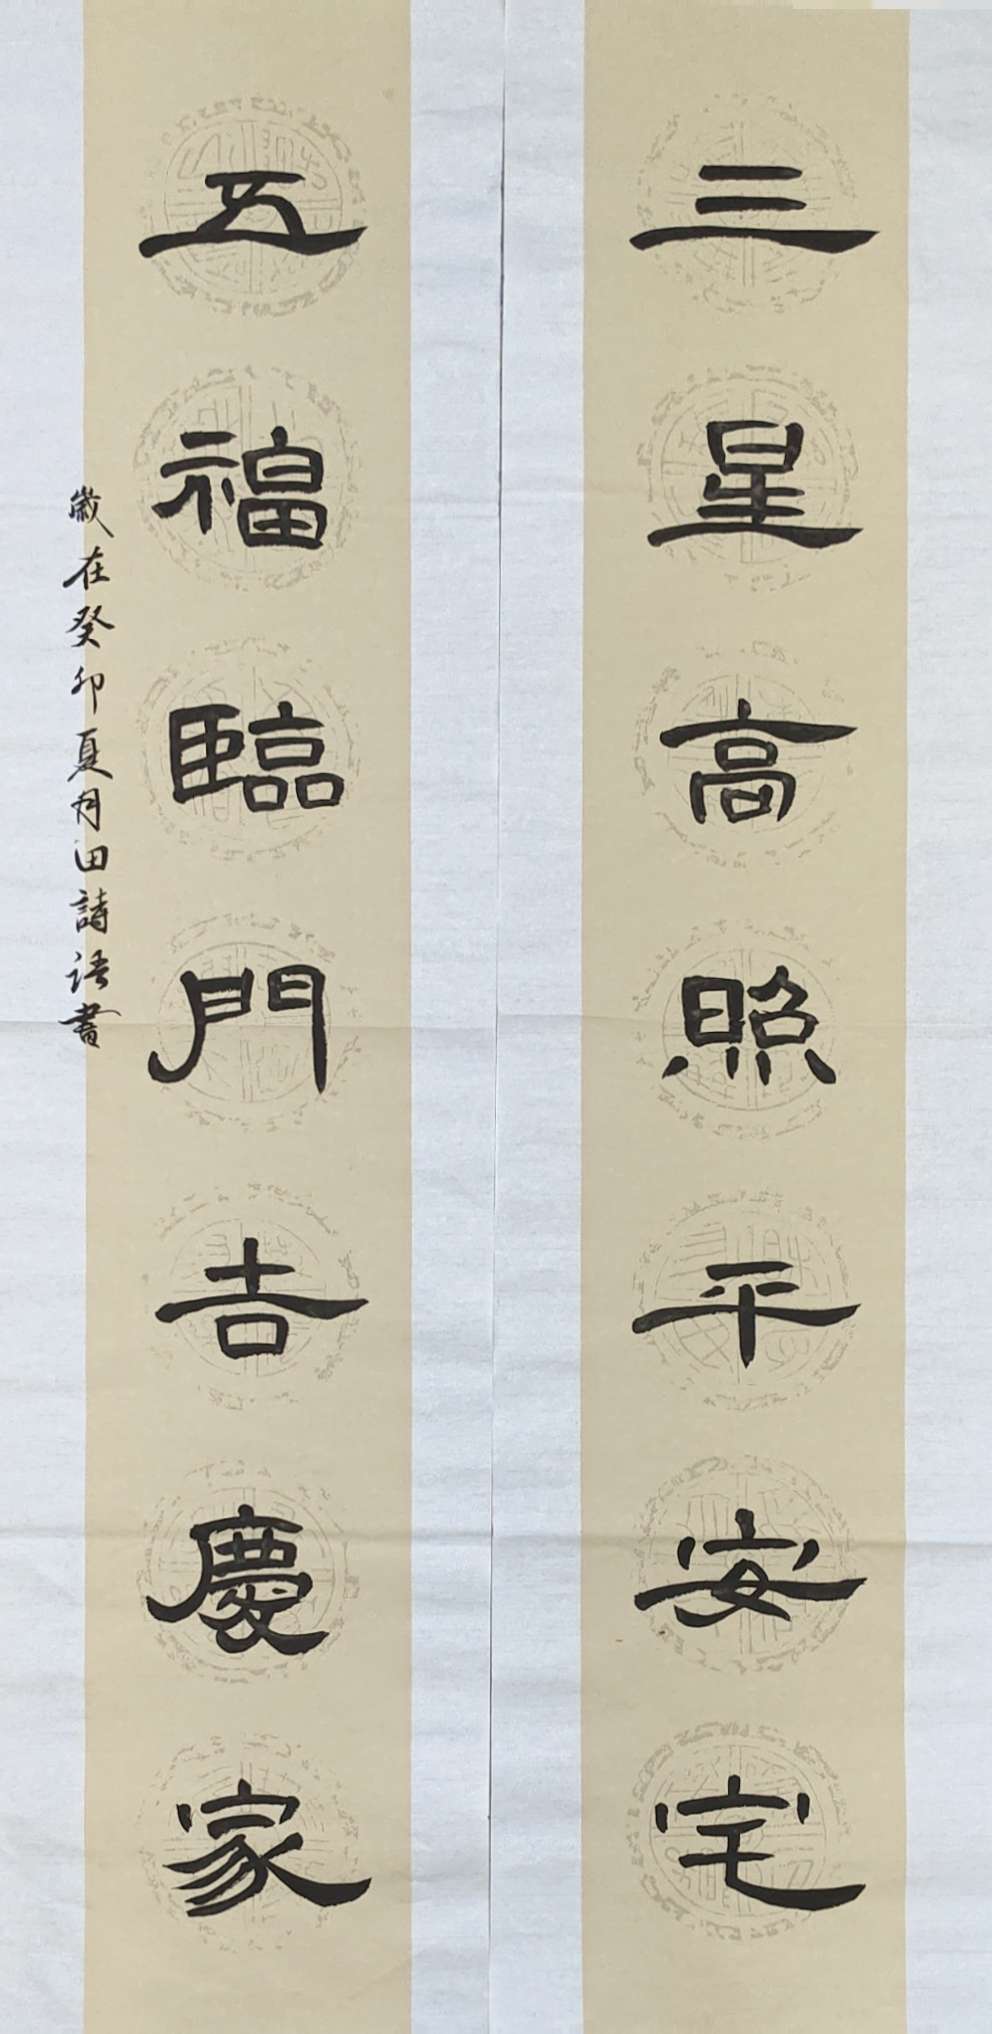 三星高照平安宅
五福臨門吉慶家
歲在癸卯夏月田詩语書